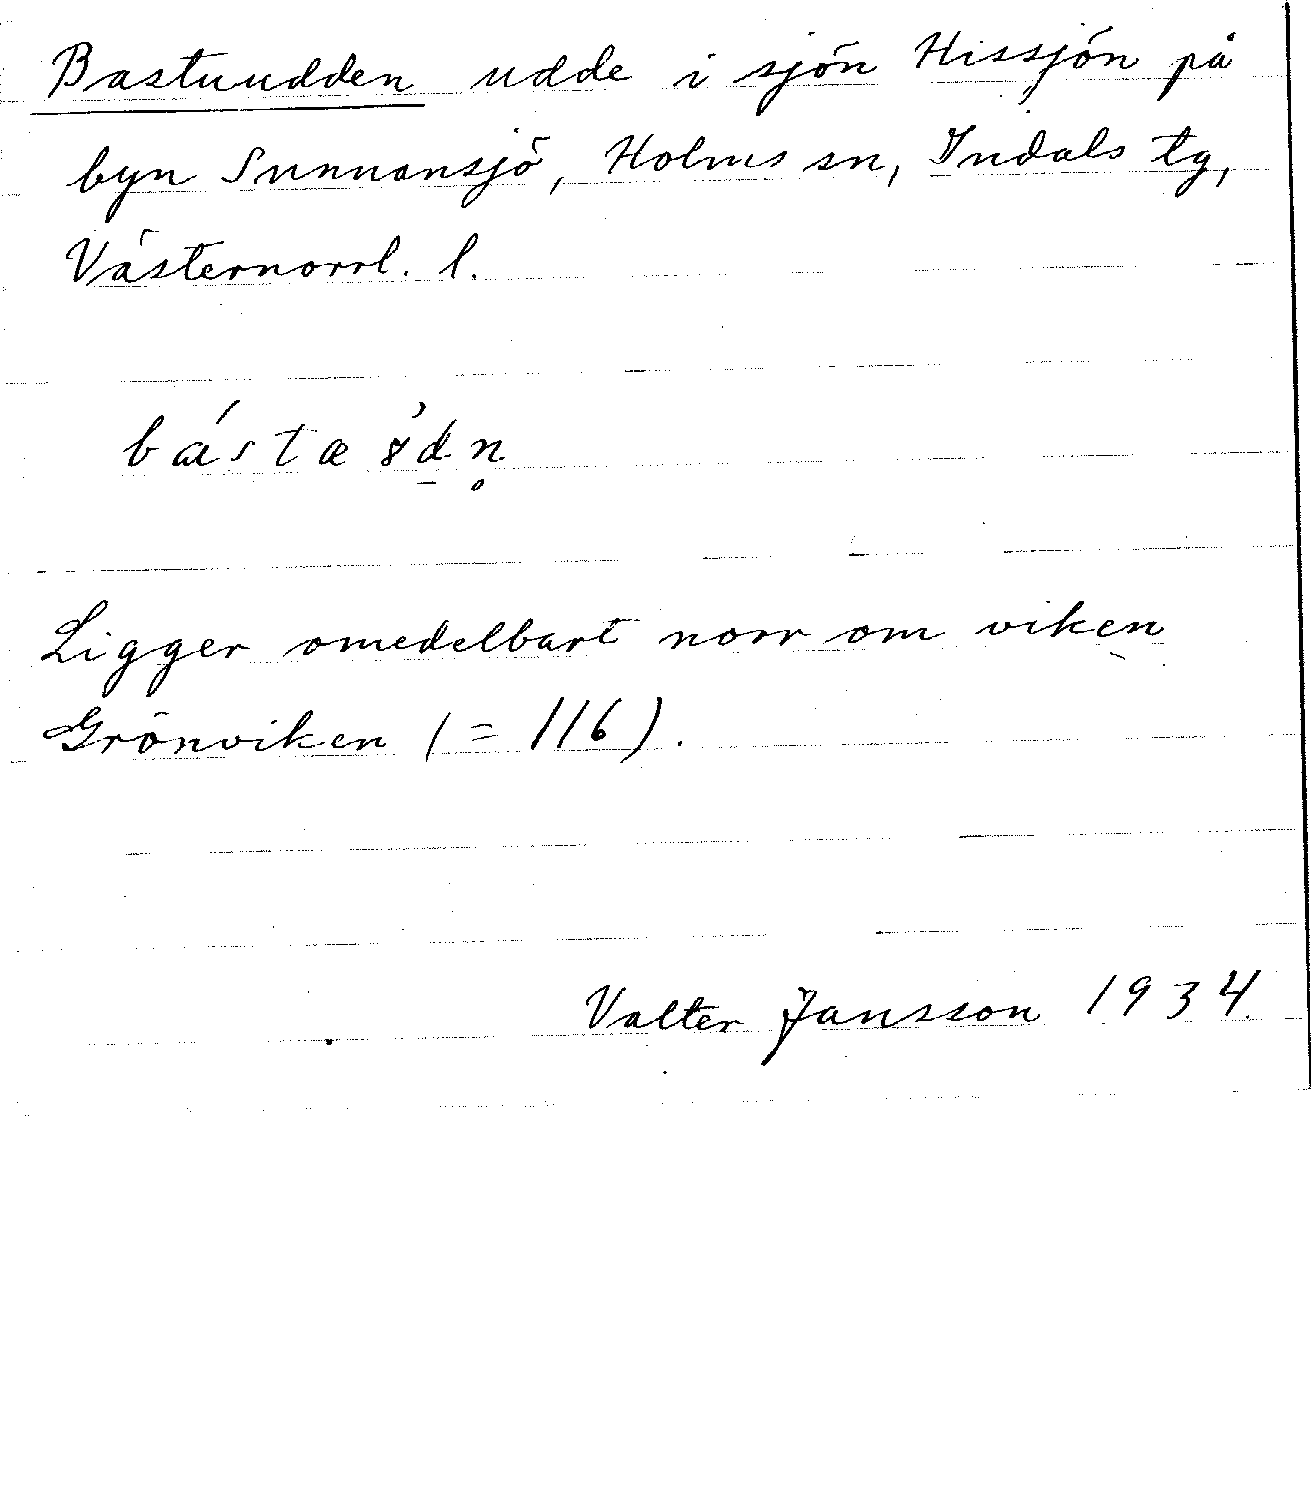 Bastuudden udde i sjön Hissjön på
byn Sunnansjö, Holms sn, Indals tg,
Västernorrl. l.
bástæ ȣ̀d̠n̥
Ligger omedelbart norr om viken
Grönviken (= 116).
Valter Jansson 1934